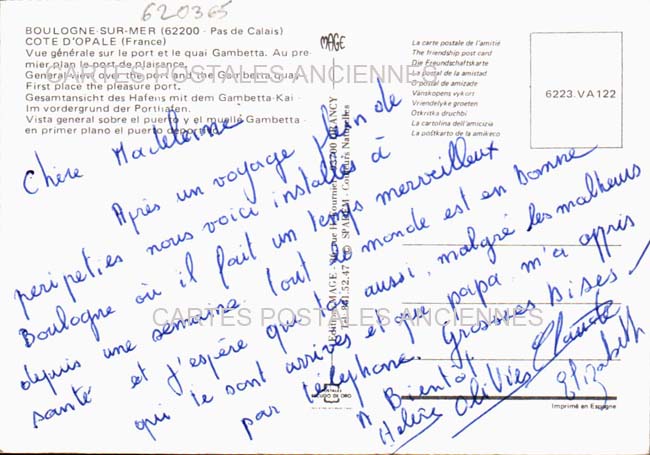 620365
BOULOGNE-SUR-MER (62200 - Pas de Calais)
COTE D'OPALE (France)
Vue générale sur le port et le quai Gambetta. Au pre-
mier plan le port de plaisance.
General view over the port and the Gambetta quay
First place the pleasure port.
Gesamtansicht des Hafens mit dem Gambetta-Kai -
Im vordergrund der Porthafen.
Vista general sobre el puerto y el muelle Gambetta -
en primer plano el puerto deportivo.
MAGE
La carte postale de l'amitié
The friendship post card
Die Freundschaftskarte
La postal de la amistad
O postal de amizade
Vänskapens vykort
Vriendelyke groeten
Otkritka druchbi
La cartolina dell'amicizia
La poštkarto de la amikeco
6223.VA 122
CARTES POSTALES ANCIENNES
Chère Madeleine
Après un voyage plein de
peripeties nous voici installés à
Boulogne où il fait un temps merveilleux
depuis une semaine. Tout le monde est en bonne
santé et j'espère que toi aussi, malgré les malheurs
qui te sont arrivés et que papa m'a appris
par téléphone. Grosses Bises -
A Bientôt
Hélène Olivier Claude
Elizabeth
CARTES POSTALES ANCIENNES
Editions MAGE - rue H. Fournier DRANCY
Tél. SPADEM - Couleurs Naturelles
POSTALES
ESCUDO DE ORO
Imprimé en Espagne